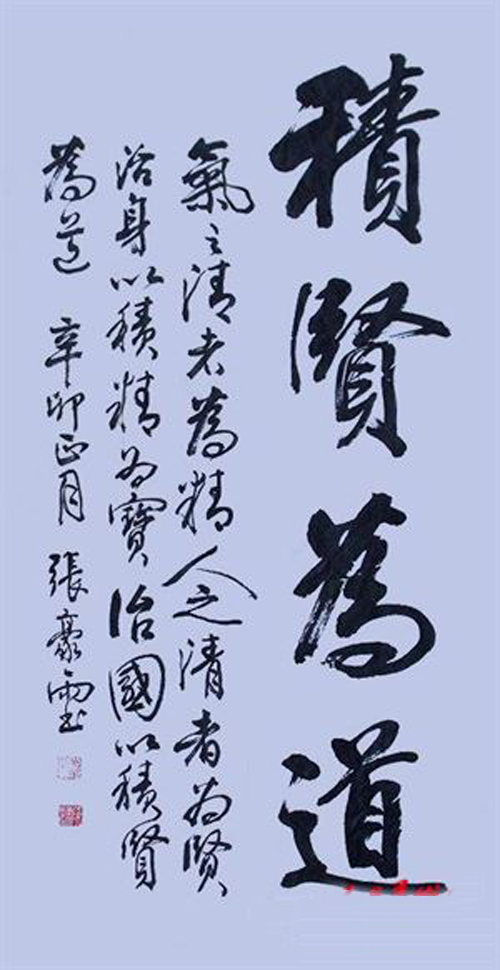 積賢為道
氣之清者為精人之清者為賢
治身以積精為寶治國以積賢
為道 辛卯正月 張豪